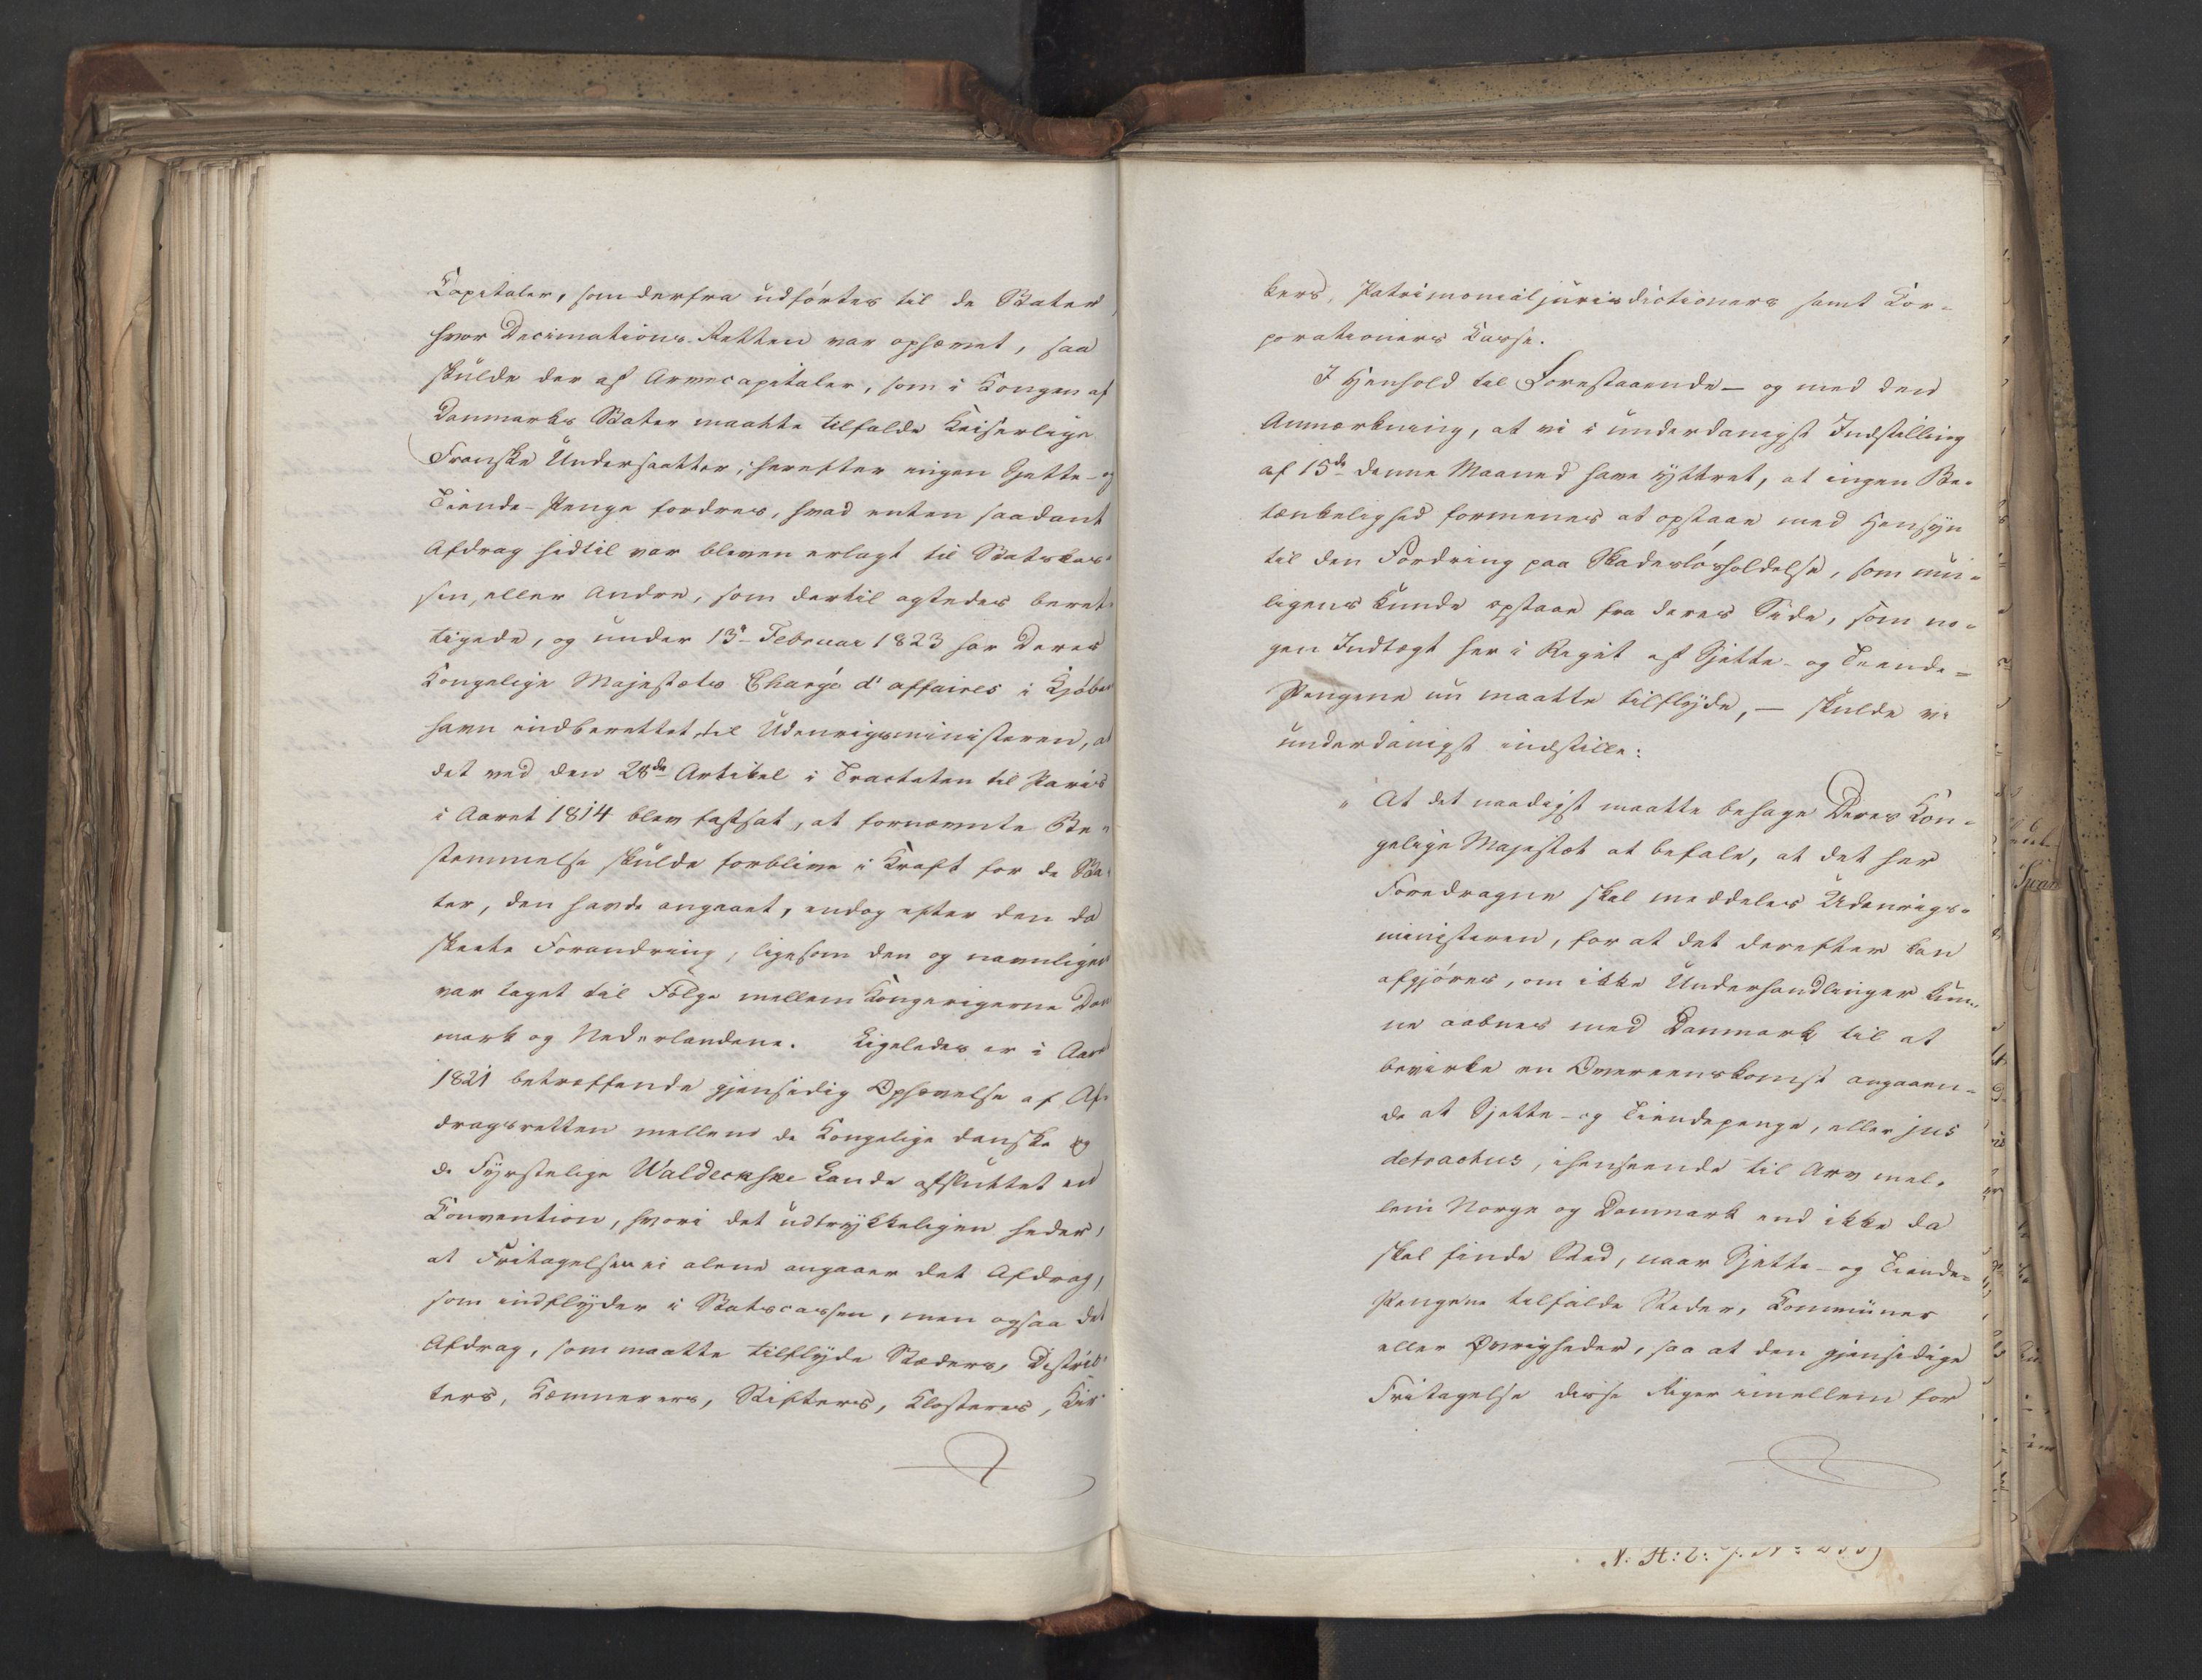 Capitaler, som derfra udførtes til de Stater,
hvor Decimations-Retten var ophævet, saa
skulde der af Arvecapitaler, som i Kongen af
Danmarks Stater maatte tilfalde Keiserlige
Franske Undersaatter, herefter ingen Sjette- og
Tiende-Penge fordres, hvad enten saadant
Afdrag hidtil var bleven erlagt til Statskas-
sen, eller Andre, som dertil agtedes beret-
tigede, og under 13de Februar 1823 har Deres
Kongelige Majestæts Chargé d'affaires i Kjøben
havn indberettet til Udenrigsministeren, at
det ved den 28de Artikel i Tractaten til Paris
i Aaret 1814 blev fastsat, at fornævnte Be-
stemmelse skulde forblive i Kraft for de Sta-
ter, den havde angaaet, endog efter den da
skeete Forandring, ligesom den og navnligen
var taget til Følge mellem Kongerigerne Dan
mark og Nederlandene. Ligeledes er i Aaret
1821 betreffende gjensidig Ophævelse af Af-
dragsretten mellem de Kongelige danske og
de Fyrstelige Waldeckske Lande afsluttet en
Convention, hvori det udtrykkeligen heder,
at Fritagelsen ei alene angaaer det Afdrag,
som indflyder i Statscassen, men ogsaa det
Afdrag, som maatte tilflyde Stæders, Distrik-
ters, Kæmnerers, Stifters, Klosteres, Kir-
kers, Patrimonialjurisdictioners samt Cor-
porationers Casse.
I Henhold til Forestaaende – og med den
Anmærkning, at vi i underdanigst Indstilling
af 15de denne Maaned have yttret, at ingen Be-
tænkelighed formenes at opstaae med Hensyn
til den Fordring paa Skadesløsholdelse, som mu-
ligens kunde opstaae fra deres Side, som no-
gen Indtægt her i Riget af Sjette- og Tiende-
Pengene nu maatte tilflyde, – skulde vi
underdanigst indstille:
" At det naadigst maatte behage Deres Kon-
gelige Majestæt at befale, at det her
Foredragne skal meddeles Udenrigs-
ministeren, for at det derefter kan
afgjøres, om ikke Underhandlinger kun-
ne aabnes med Danmark til at
bevirke en Overeenskomst angaaen-
de at Sjette- og Tiendepenge, eller jus
detractus, ihenseende til Arv mel-
lem Norge og Danmark end ikke da
skal finde Sted, naar Sjette- og Tiende-
Pengene tilfalde Steder, Communer
eller Øvrigheder, saa at den gjensidige
Fritagelse disse Riger imellem for